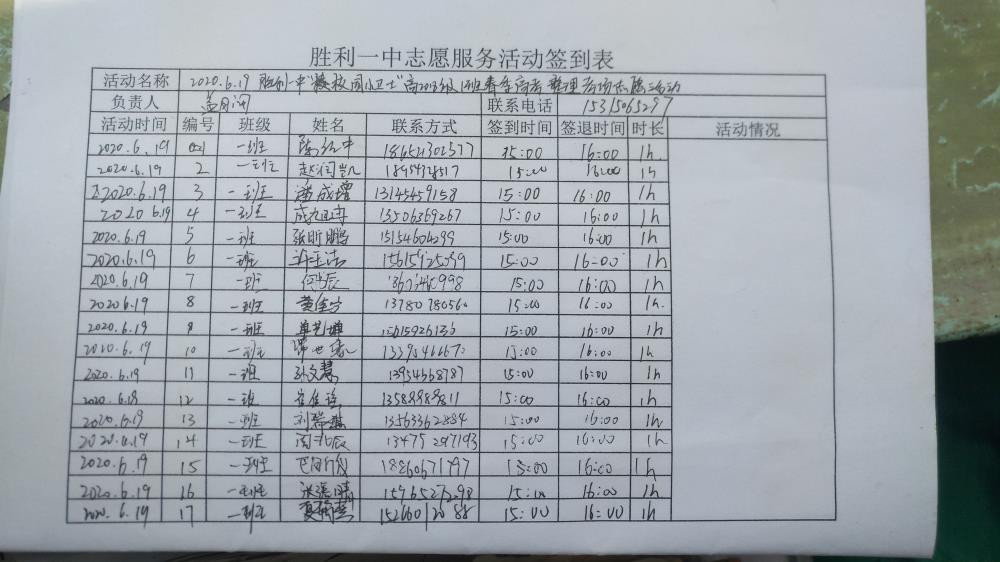 胜利一中志愿服务活动签到表
活动名称 2020.6.19 胜利一中"校园小卫士"高2018级1班春季高考整理考场志愿活动
负责人 联系电话 15315065297
活动时间 编号 班级 姓名 联系方式 签到时间 签退时间 时长 活动情况
2020.6.19 一班 15:00 16:00 1h.
2020.6.19 2 一班 赵润凯 15:00 16:00 1h
2020.6.19 3 一班 潘成增 13145459158 15:00 16:00 1h
2020 6.19 4 一班 13506369267 15:00 16:00 1h
2020.6.19 5 一班 张昕鹏 15154604299 15:00 16:00 1h
2020.6.19 6 一班 15:00 16:00 1h
2020.6.19 7 一班 15:00 16:00 1h
2020.6.19 8 一班 15:00 16:00 1h.
2020.6.19 9 一班 15615926136 15:00 16:00 1h
2020.6.19 10 一班 15:00 16:00 1h
2020.6.19 11 一班 孙文慧 13954668787 15:00 16:00 1h
2020.6.19 12 一班 13589989811 15:00 16:00 1h
2020.6.19 13 一班 13563362884 15:00 16:00 1h
2020.6.19 14 一班 闫北辰 13475297193 15:00 16:00 1h
2020.6.19 15 一班 18860671797 15:00 16:00 1h
2020.6.19 16 一班 15965272298 15:00 16:00 1h
2020.6.19 17 一班 15266012088 15:00 16:00 1h